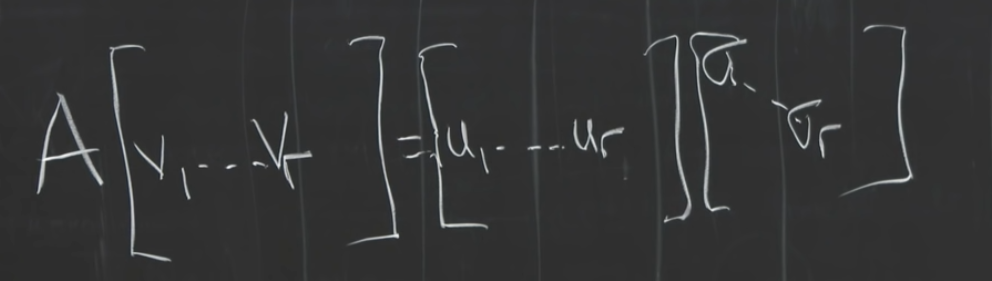 A [v₁ ... vᵣ] = [u₁ ... uᵣ] [σ₁ ⋱ σᵣ]